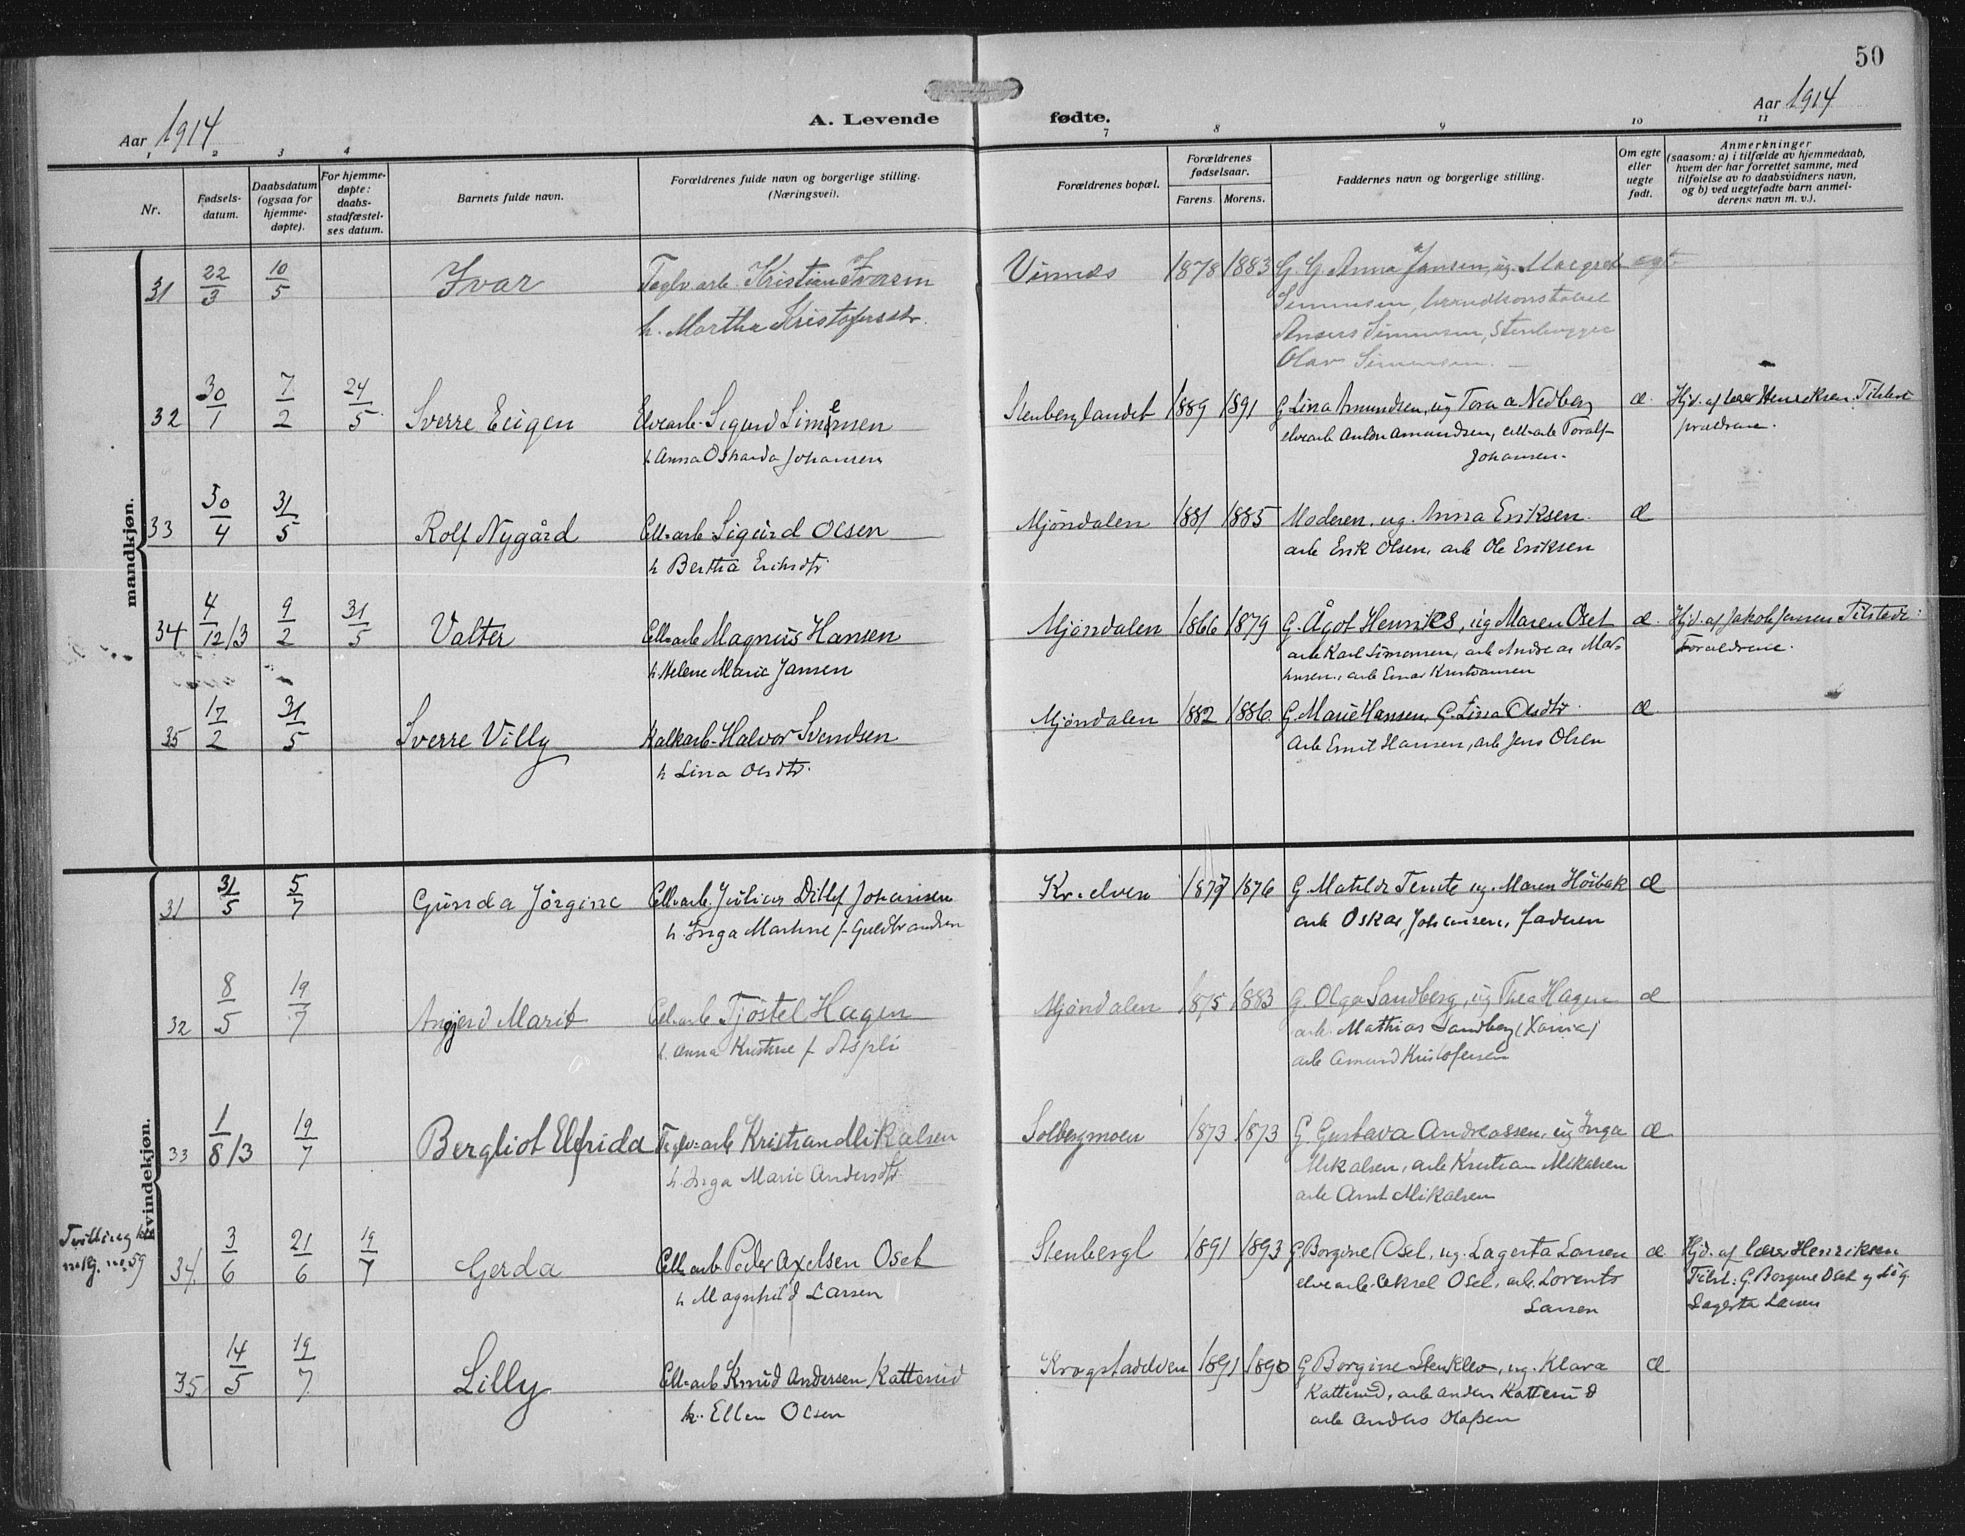 50
Aar 1914
A. Levende
fødte.
Aar 1914
1 2 3 4 7 8 9 10 11
Nr.
Fødsels-
datum.
Daabsdatum
(ogsaa for
hjemme-
døpte).
For hjemme-
døpte:
daabs-
stadfæstel-
ses datum.
Barnets fulde navn.
Forældrenes fulde navn og borgerlige stilling.
(Næringsvei).
Forældrenes bopæl.
Forældrenes
fødselsaar.
Farens. Morens.
Faddernes navn og borgerlige stilling.
Om egte
eller
uegte
født.
Anmerkninger
(saasom: a) i tilfælde av hjemmedaab,
hvem der har forrettet samme, med
tilføielse av to daabsvidners navn,
og b) ved uegtefødte barn anmel-
derens navn m. v.).
mandkjøn.
31 22/3 10/5 Ivar Teglv.arb. Kristian Ivarsen Vinnes 1878 1883 G. G. Anna Jansen, ug. Margret egt.
h. Martha Kristofersdtr. Simensen, brandkonstabel
Anders Simensen, Stenhugger
Olav Simensen. —
32 30/1 7/2 24/5 Sverre Eugen Elvearb. Sigurd Simensen Stenberglandet 1889 1891 G Lina Amundsen, ug Tora a Nedberg æ. Hjd. af lærer Henriksen Tilstede
h Anna Oskarda Johansen elvearb Anton Amundsen, cell-arb Toralf forældrene.
Johansen.
33 30/4 31/5 Rolf Nygård Cell-arb Sigurd Olsen Mjöndalen 1881 1885 Moderen, ug. Anna Eriksen. æ
h Bertha Eriksdtr arb Erik Olsen, arb Ole Eriksen
34 4/12/3 9/2 31/5 Valter Cell-arb Magnus Hansen Mjöndalen 1866 1879 G. Ågot Henriks, ug Maren Oset æ. Hjd. af Jakob Jensen Tilstede:
h Helene Marie Jansen arb Karl Simonsen, arb Andreas Mat- Forældrene.
hisen, arb Einar Kristiansen
35 17/2 31/5 Sverre Villy Kalkarb. Halvor Svendsen Mjöndalen 1882 1886 G. Marie Hansen, G. Lina Olsdtr. æ
h Lina Olsdtr. Arb Ernst Hansen, arb Jens Olsen
kvindekjøn.
31 31/5 5/7 Gunda Jörgine Cell-arb. Julius Ditlef Johansen Kr.elven 1877 1876 G. Matilde Temte ug. Maren Höibak æ
h. Inga Martine f. Guldbrandsen arb Oskar Johansen, faderen
32 8/5 19/7 Marit Cell.arb Tjöstel Hagen Mjöndalen 1875 1883 G. Olga Sandberg, ug Thea Hagen æ
h. Anna Kristine f. Aspli arb. Mathias Sandberg
arb Amund Kristofersen
33 1/8/3 19/7 Bergliot Elfrida Teglv-arb Kristian Mikalsen Solbergmoen 1873 1873 G. Gustava Andreassen, ug Inga æ
h. Inga Marie Andersdtr Mikalsen, arb Kristian Mikalsen
arb Arnt Mikalsen
Tvilling
no 59
34. 3/6 21/6 19/7 Gerda Cell-arb Peder Axelsen Oset Stenbergl 1891 1893 G Borgine Oset, ug. Lagerta Larsen æ Hjd. af lærer Henriksen
h Magnhild Larsen elvearb. Aksel Oset, arb. Lorents Tilst: G. Borgine Oset og ug.
Larsen Lagerta Larsen
35 14/5 19/7 Lilly Cell-arb Knud Andersen Katterud Krogstadelven 1891 1890 G Borgine Stenklev, ug. Klara æ
h. Ellen Olsen Katterud, arb anders Katterud
arb Anders Olafsen